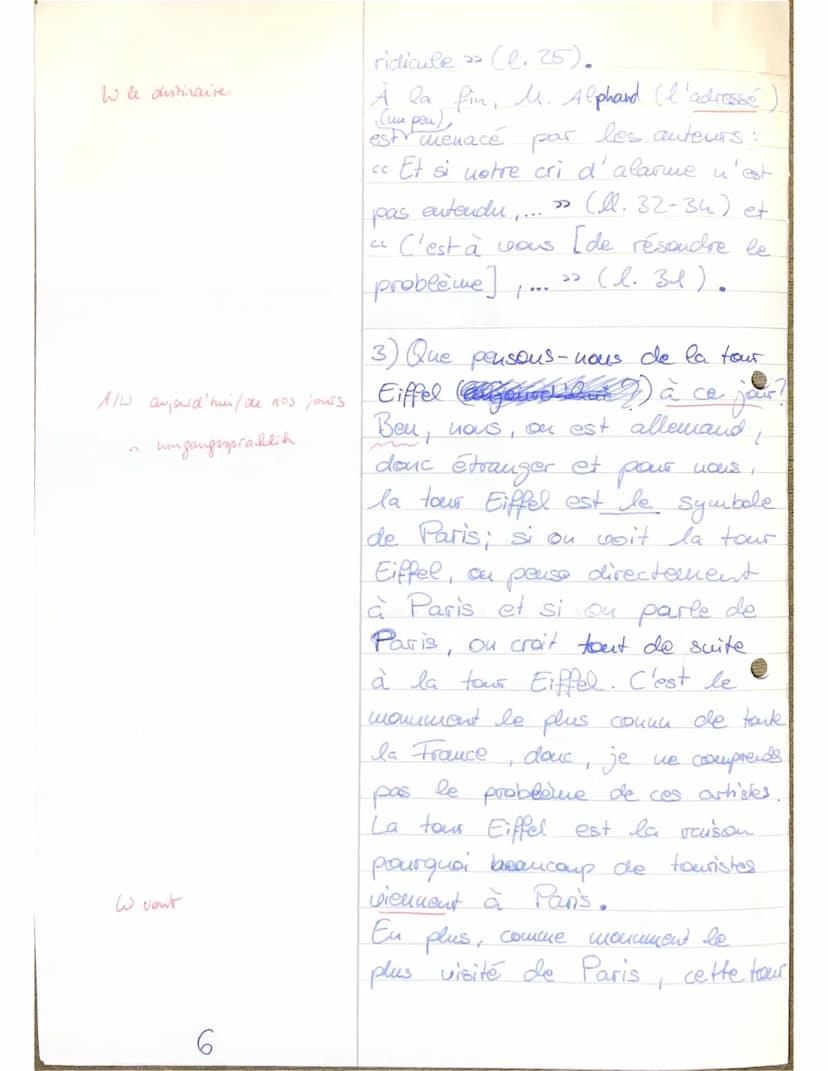 ridicule » (l. 25).
W le distinaire
À la fin, M. Alphand (l'adressé)
(un peu)
est menacé par les auteurs :
« Et si notre cri d'alarme n'est
pas entendu,... » (ll. 32-34) et
« C'est à vous [de résoudre le
problème] ,... » (l. 31).
3) Que pensons-nous de la tour
A/W aujourd'hui/de nos jours
Eiffel ( ?) à ce jour?
Ben, nous, on est allemand,
umgangssprachlich
donc étranger et pour nous,
la tour Eiffel est le symbole
de Paris; si on voit la tour
Eiffel, on pense directement
à Paris et si on parle de
Paris, on croit tout de suite
à la tour Eiffel. C'est le
monument le plus connu de toute
la France, donc, je ne comprends
pas le problème de ces artistes.
La tour Eiffel est la raison
pourquoi beaucoup de touristes
W vont
viennent à Paris.
En plus, comme monument le
plus visité de Paris, cette tour
6